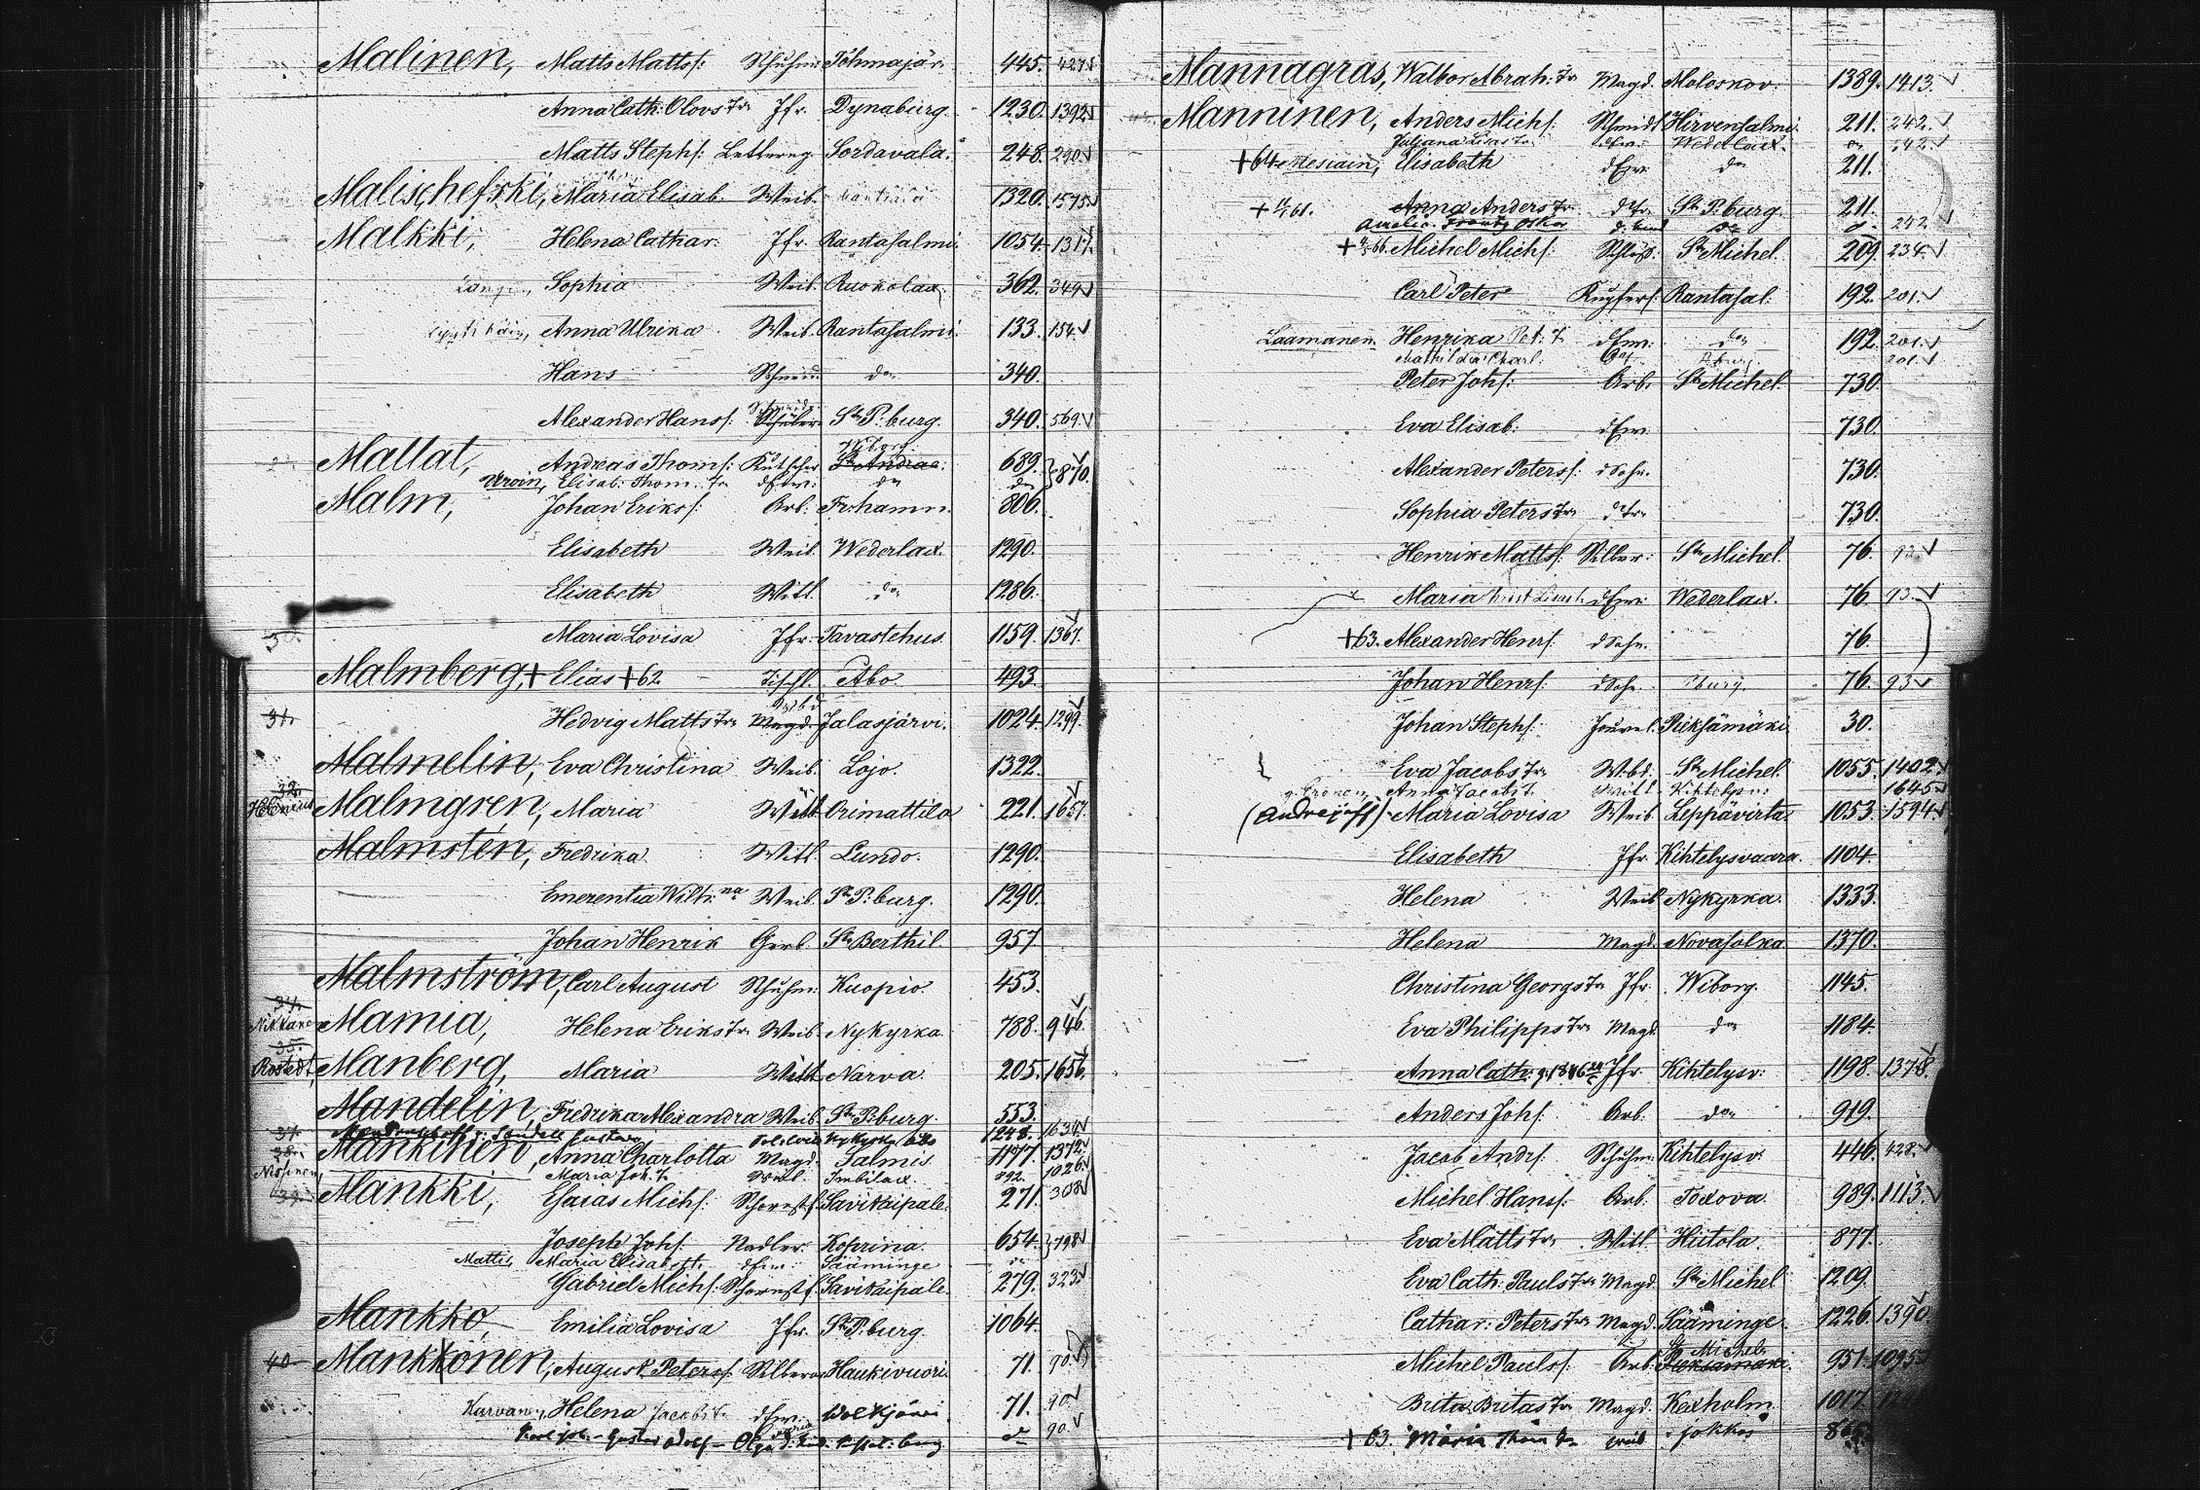 Malinen, Matts Mattss: Schuhm: Tohmajär. 445. 427
Anna Cath: Olovs Tr Jfr. Dynaburg. 1230. 1392
Matts Stephs: Lettereng Sordavala. 248. 290
Malischefski, Maria Elisab. Weib. 1320. 1575
Malkki, Helena Cathar. Jfr. Rantasalmi. 1054. 1317.
Sophia Weib. Ruokolax. 362. 349
Anna Ulrika Weib. Rantasalmi. 133. 154
Hans Schneid. do 340.
Alexander Hanss. St P:burg. 340. 569.
Mallat, Andreas Thoms: Kutscher Wiborg. St Andrae: 689. 870.
Uroin, Elisab: Thom. Tr dEw: do do
Malm, Johan Erikss: Arb: Fr:hamn. 806.
Elisabeth Weib. Wederlax. 1290.
Elisabeth Witt. do 1286.
Maria Lovisa Jfr: Tavastehus. 1159. 1367.
Malmberg, + Elias +62 Tischl. Åbo 493.
31. Hedvig Matts Tr Magd. Jalasjärvi. 1024. 1299.
Malmelin, Eva Christina Weib. Lojo. 1322.
32.
Helenius Malmgren, Maria Witt Orimattila 221. 1657.
Malmstén, Fredrika Witt. Lundo. 1290.
Emerentia Wilh:na Weib. St P:burg. 1290.
Johan Henrik Gerb. St Berthil. 957
Malmström, Carl August Schuhm: Kuopio. 453.
34.
Mamia, Helena Eriks Tr Weib. Nykyrka. 788. 946.
35.
Manberg, Maria Witt. Narva. 205. 1656.
Mandelin, Fredrika Alexandra Weib. St P:burg. 553.
Gustava Nykyrka 1248. 1634
Mankinen, Anna Charlotta Magd. Salmis. 1177. 1372
Maria Joh. T. Weib. Imbilax. 1026
Mankki, Esaias Michs: Schornstf. Savitaipale. 271. 308
Joseph Johs: Nadler. Koprina. 654. 798
Matti, Maria Elisabeth dEw: Sääminge
Gabriel Michs: Schornstf. Savitaipale. 279. 323
Mankko, Emilia Lovisa Jfr. St P:burg. 1064.
40. Mankkonen, August Peterss: Silberar Haukivuori. 71. 90.
Karvanen, Helena Jacobs Tr dEw: Wolkjärvi. 71. 90
Gustav Adolf - Olga do 90.
Mannagräs, Walbor Abrah: Tr Magd. Moloskov. 1389. 1413.
Manninen, Anders Michs: Schmidt Hirvensalmi. 211. 242.
Juliana dEw: Wederlax. do 242.
+64 Mesiäin, Elisabeth dEw do 211.
+ 61. Anna Anders Tr dTr St P:burg. 211.
Amalia. do 242
+ 66. Michel Michs: Schloss: St Michel. 209. 234.
Carl Peter Kupfers: Rantasal. 192. 201.
Laamanen. Henrika Pet: T. dEw: do 192. 201.
Mathilda Charl. Pburg. 201.
Peter Johs: Arb. St Michel. 730.
Eva Elisab: dEw: 730.
Alexander Peterss: dSohn. 730.
Sophia Peters Tr dTr 730.
Henrik Mattss: Silber: St Michel. 76. 93.
Maria dEw: Wederlax. 76. 93.
+63. Alexander Henrs: dSohn. 76.
Johan Henrs: dSohn. Pburg. 76. 93
Johan Stephs: Jouwel. Pieksämäki 30.
Eva Jacobs Tr Wbd. St Michel. 1055. 1402.
Anna Jacobs T. Witt. Kihtelysv: 1645
(Andrejeff) Maria Lovisa Weib Leppävirta. 1053. 1594.
Elisabeth Jfr. Kihtelysvaara. 1104.
Helena Weib. Nykyrka. 1333.
Helena Magd. Novasolka. 1370.
Christina Georgs Tr Jfr. Wiborg. 1145.
Eva Philipps Tr Magd. do 1184.
Anna Cath: g. 1846 Jfr. Kihtelysv: 1198. 1378.
Anders Johs: Arb. do 919.
Jacob Andrs: Schuhm: Kihtelysv. 446. 428.
Michel Hanss: Arb. Toxova. 989. 1113.
Eva Matts Tr Witt. Hiitola. 877.
Eva Cath: Pauls Tr Magd. St Michel 1209.
Cathar: Peters Tr Magd. Sääminge. 1226. 1390
Michel Paulss: Arb. St Michel. Pieksämäki. 951. 1095
Brita Britas Tr Magd. Kexholm. 1017.
+ 63. Maria Thom Tr Weib Jokkas